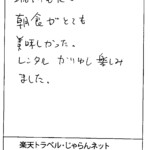 朝食がとても
美味しかった。
レンタル かりゆし 楽しみ
ました。
楽天トラベル・じゃらんネット